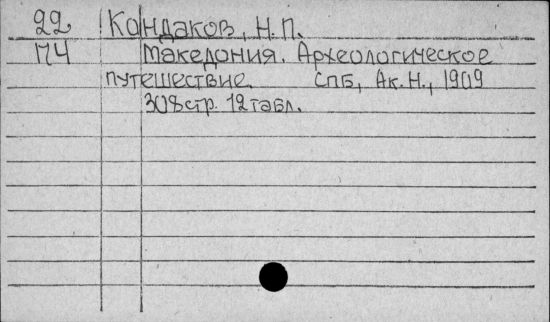 22 Кондаков, Н.П.
П4 Македония. Археологическое
путешествие. СПБ, Ак.Н., 1909
308стр. 12табл.